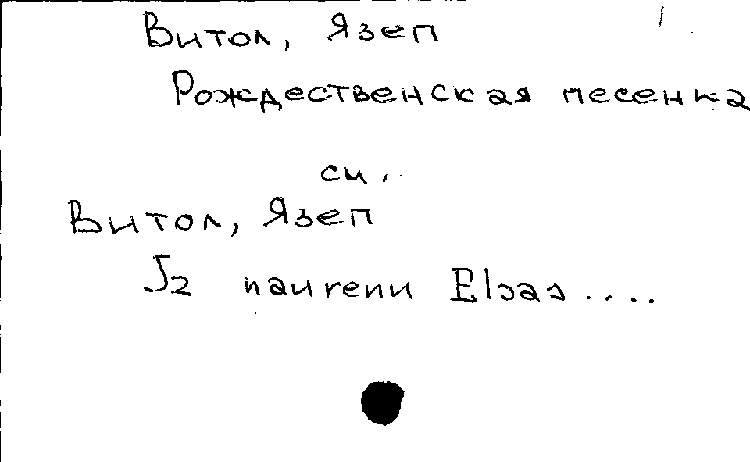 Витол, Язеп
Рождественская песенка
см.
Витол, Язеп
Elsas....